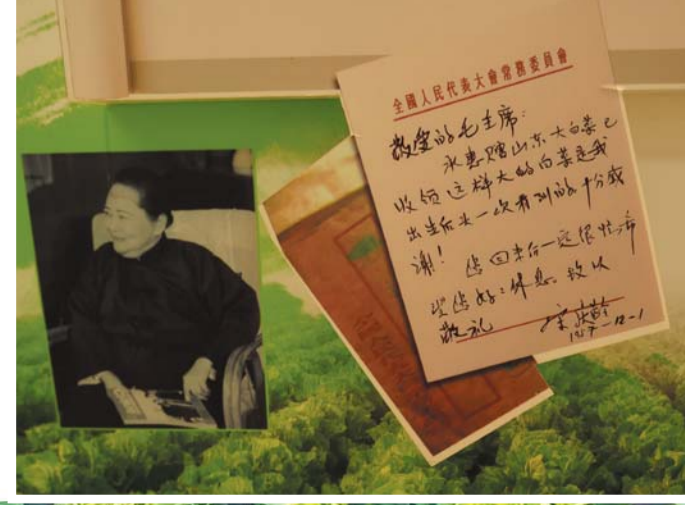 全國人民代表大會常務委員會
敬爱的毛主席：
承惠赠山东大白菜已
收领这样大的白菜是我
出生后头一次看到的十分感
谢！您回来后一定很忙，希
望您好好休息 致以
敬礼
宋庆龄
1957-12-1